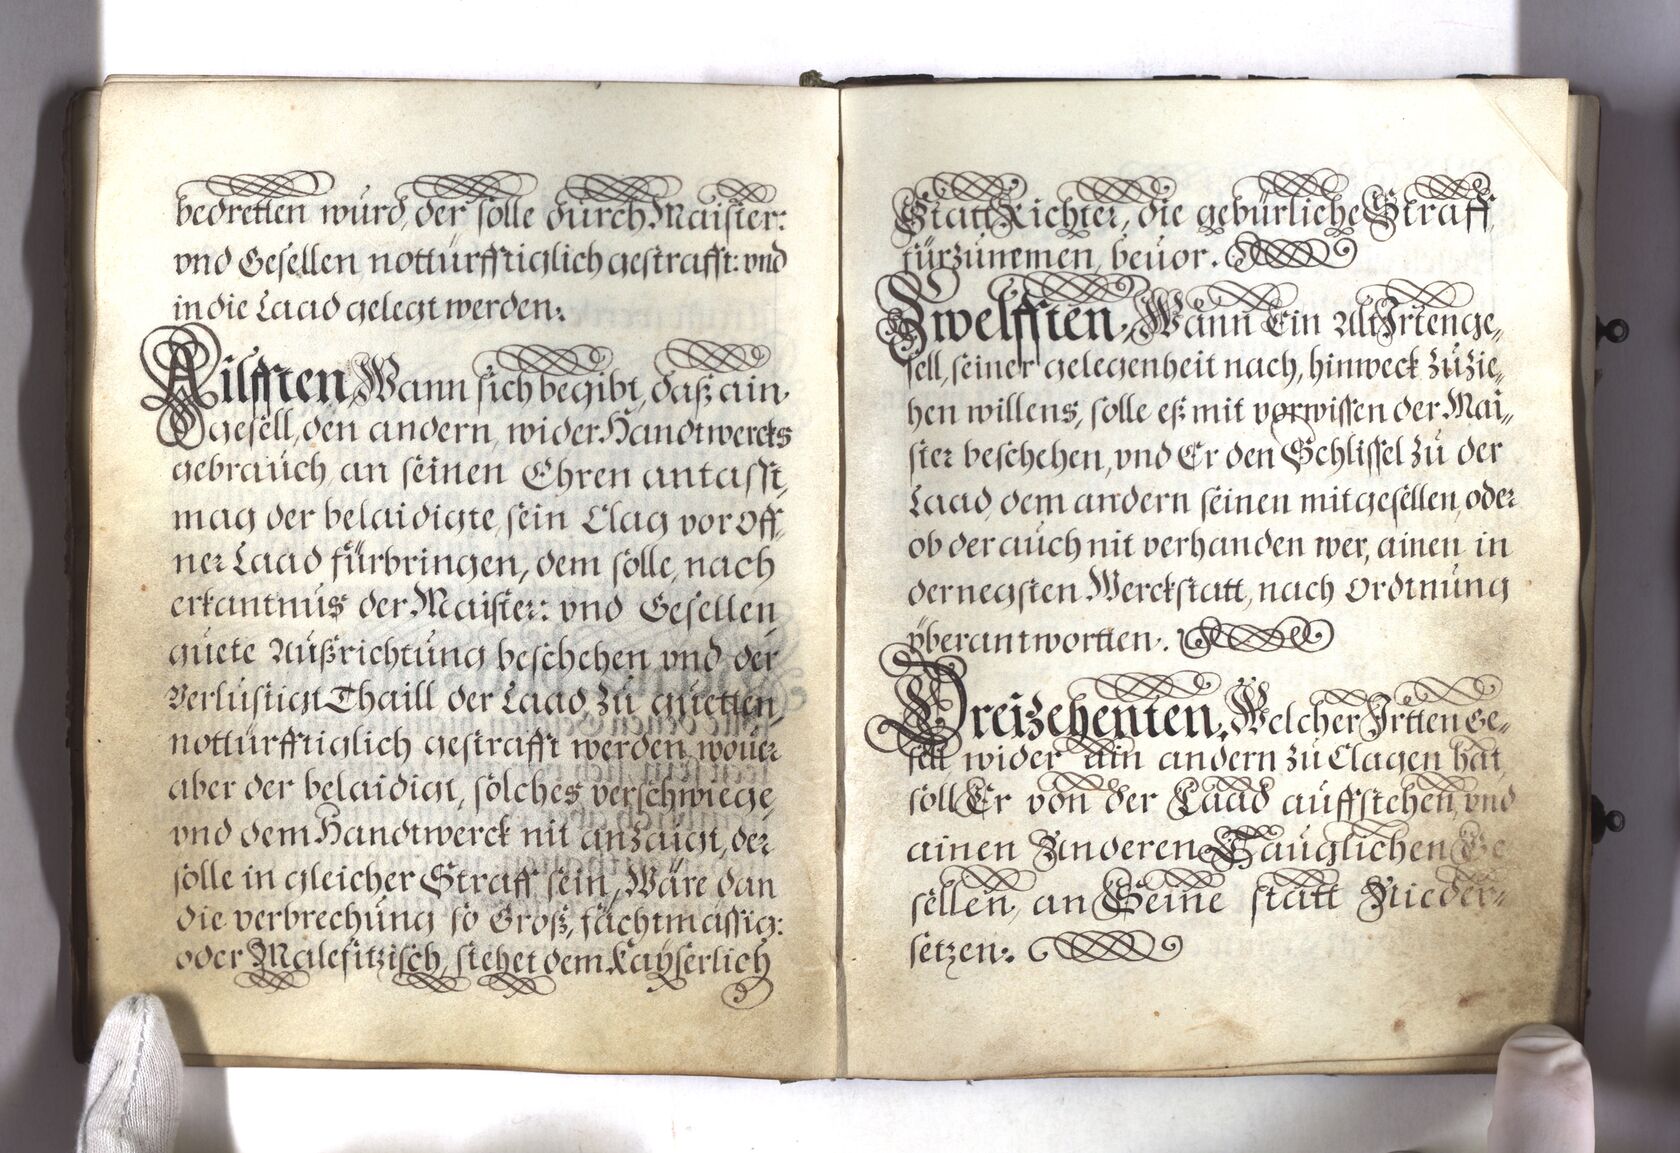 bedretten würd, der solle dürch Maister:
vnd Gesellen nottürfftiglich gestrafft: vnd
in die Laad gelegt werden.
Ailfften, Wann sich begibt, daß ain
gesell, den andern, wider Handtwercks
gebraüch an seinen Ehren antasst,
mag der belaidigte, sein Clag vor off„
ner Laad fürbringen, dem solle, nach
erkantnüs der Maister: vnd Gesellen
güete Aüßrichtüng beschehen vnd der
Verlüstigt Thaill der Laad zü güetten,
nottürfftiglich gestrafft werden, woüer
aber der belaidigt, solches verschwiege,
vnd dem Handtwerck nit anzaigt, der
solle in gleicher Straff sein, Wäre dan
die verbrechüng so Groß, fachtmässig:
oder Malefitzisch, stehet dem Kayserlich
Statt Richter, die gebürliche Straff
fürzünemen, beüor.
Zwelfften, Wann Ein Alt Irtenge„
sell, seiner gelegenheit nach, hinweck zü zie„
hen willens, solle eß mit vorwissen der Mai„
ster beschehen, vnd Er den Schlissel zü der
Laad, dem andern seinen mitgesellen, oder
ob der aüch nit verhanden wer, ainen in
der negsten Werckstatt, nach Ordtnüng
yberantwortten.
Dreizehenten, Welcher Irtten Ge„
sell, wider ain andern zü Clagen hat,
soll Er von der Laad aüffstehen, vnd
ainen Anderen Taüglichen Ge
sellen, an Seine statt Nieder„
setzen.